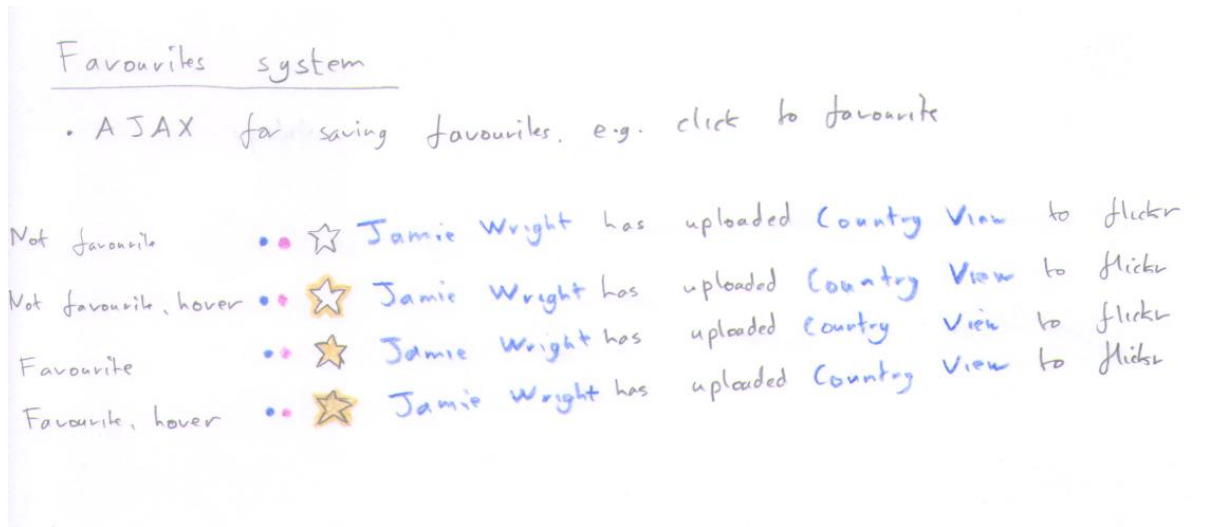 Favourites system
• AJAX for saving favourites. e.g. click to favourite
Not favourite •• ☆ Jamie Wright has uploaded Country View to flickr
Not favourite, hover •• ☆ Jamie Wright has uploaded Country View to flickr
Favourite •• ★ Jamie Wright has uploaded Country View to flickr
Favourite, hover •• ★ Jamie Wright has uploaded Country View to flickr